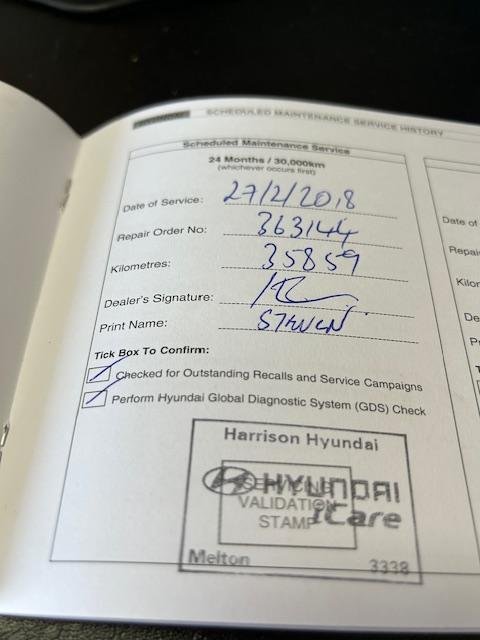 SCHEDULED MAINTENANCE SERVICE HISTORY
Scheduled Maintenance Service
24 Months / 30,000km
(whichever occurs first)
Date of Service: 27/2/2018
Repair Order No: 363144
Kilometres: 35859
Dealer's Signature:
Print Name: STEVEN
Tick Box To Confirm:
Checked for Outstanding Recalls and Service Campaigns
Perform Hyundai Global Diagnostic System (GDS) Check
Harrison Hyundai
HYUNDAI
VALIDATION
STAMP iCare
Melton 3338
Date of
Repai
Kilor
De